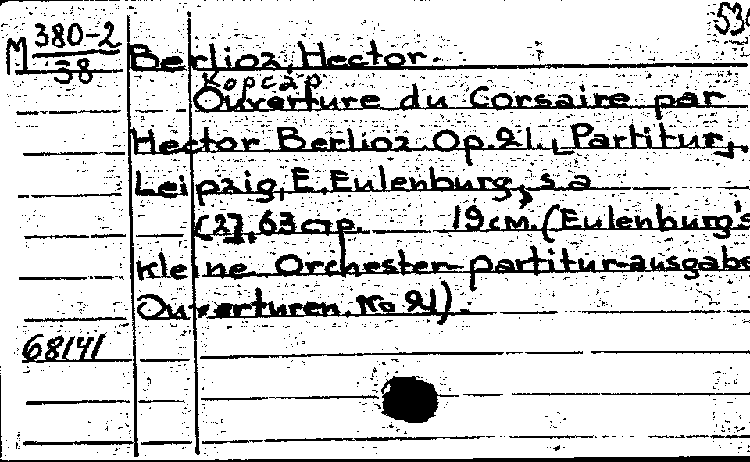 534
M 380-2
38
Berlioz, Hector.
Корсар
Ouverture du Corsaire par
Hector Berlioz. Op. 21. [Partitur].
Leipzig, E. Eulenburg, s.a
(2], 63 стр. 19 см. (Eulenburg's
kleine Orchester-partitur-ausgabe
Ouverturen. No 21).
68141